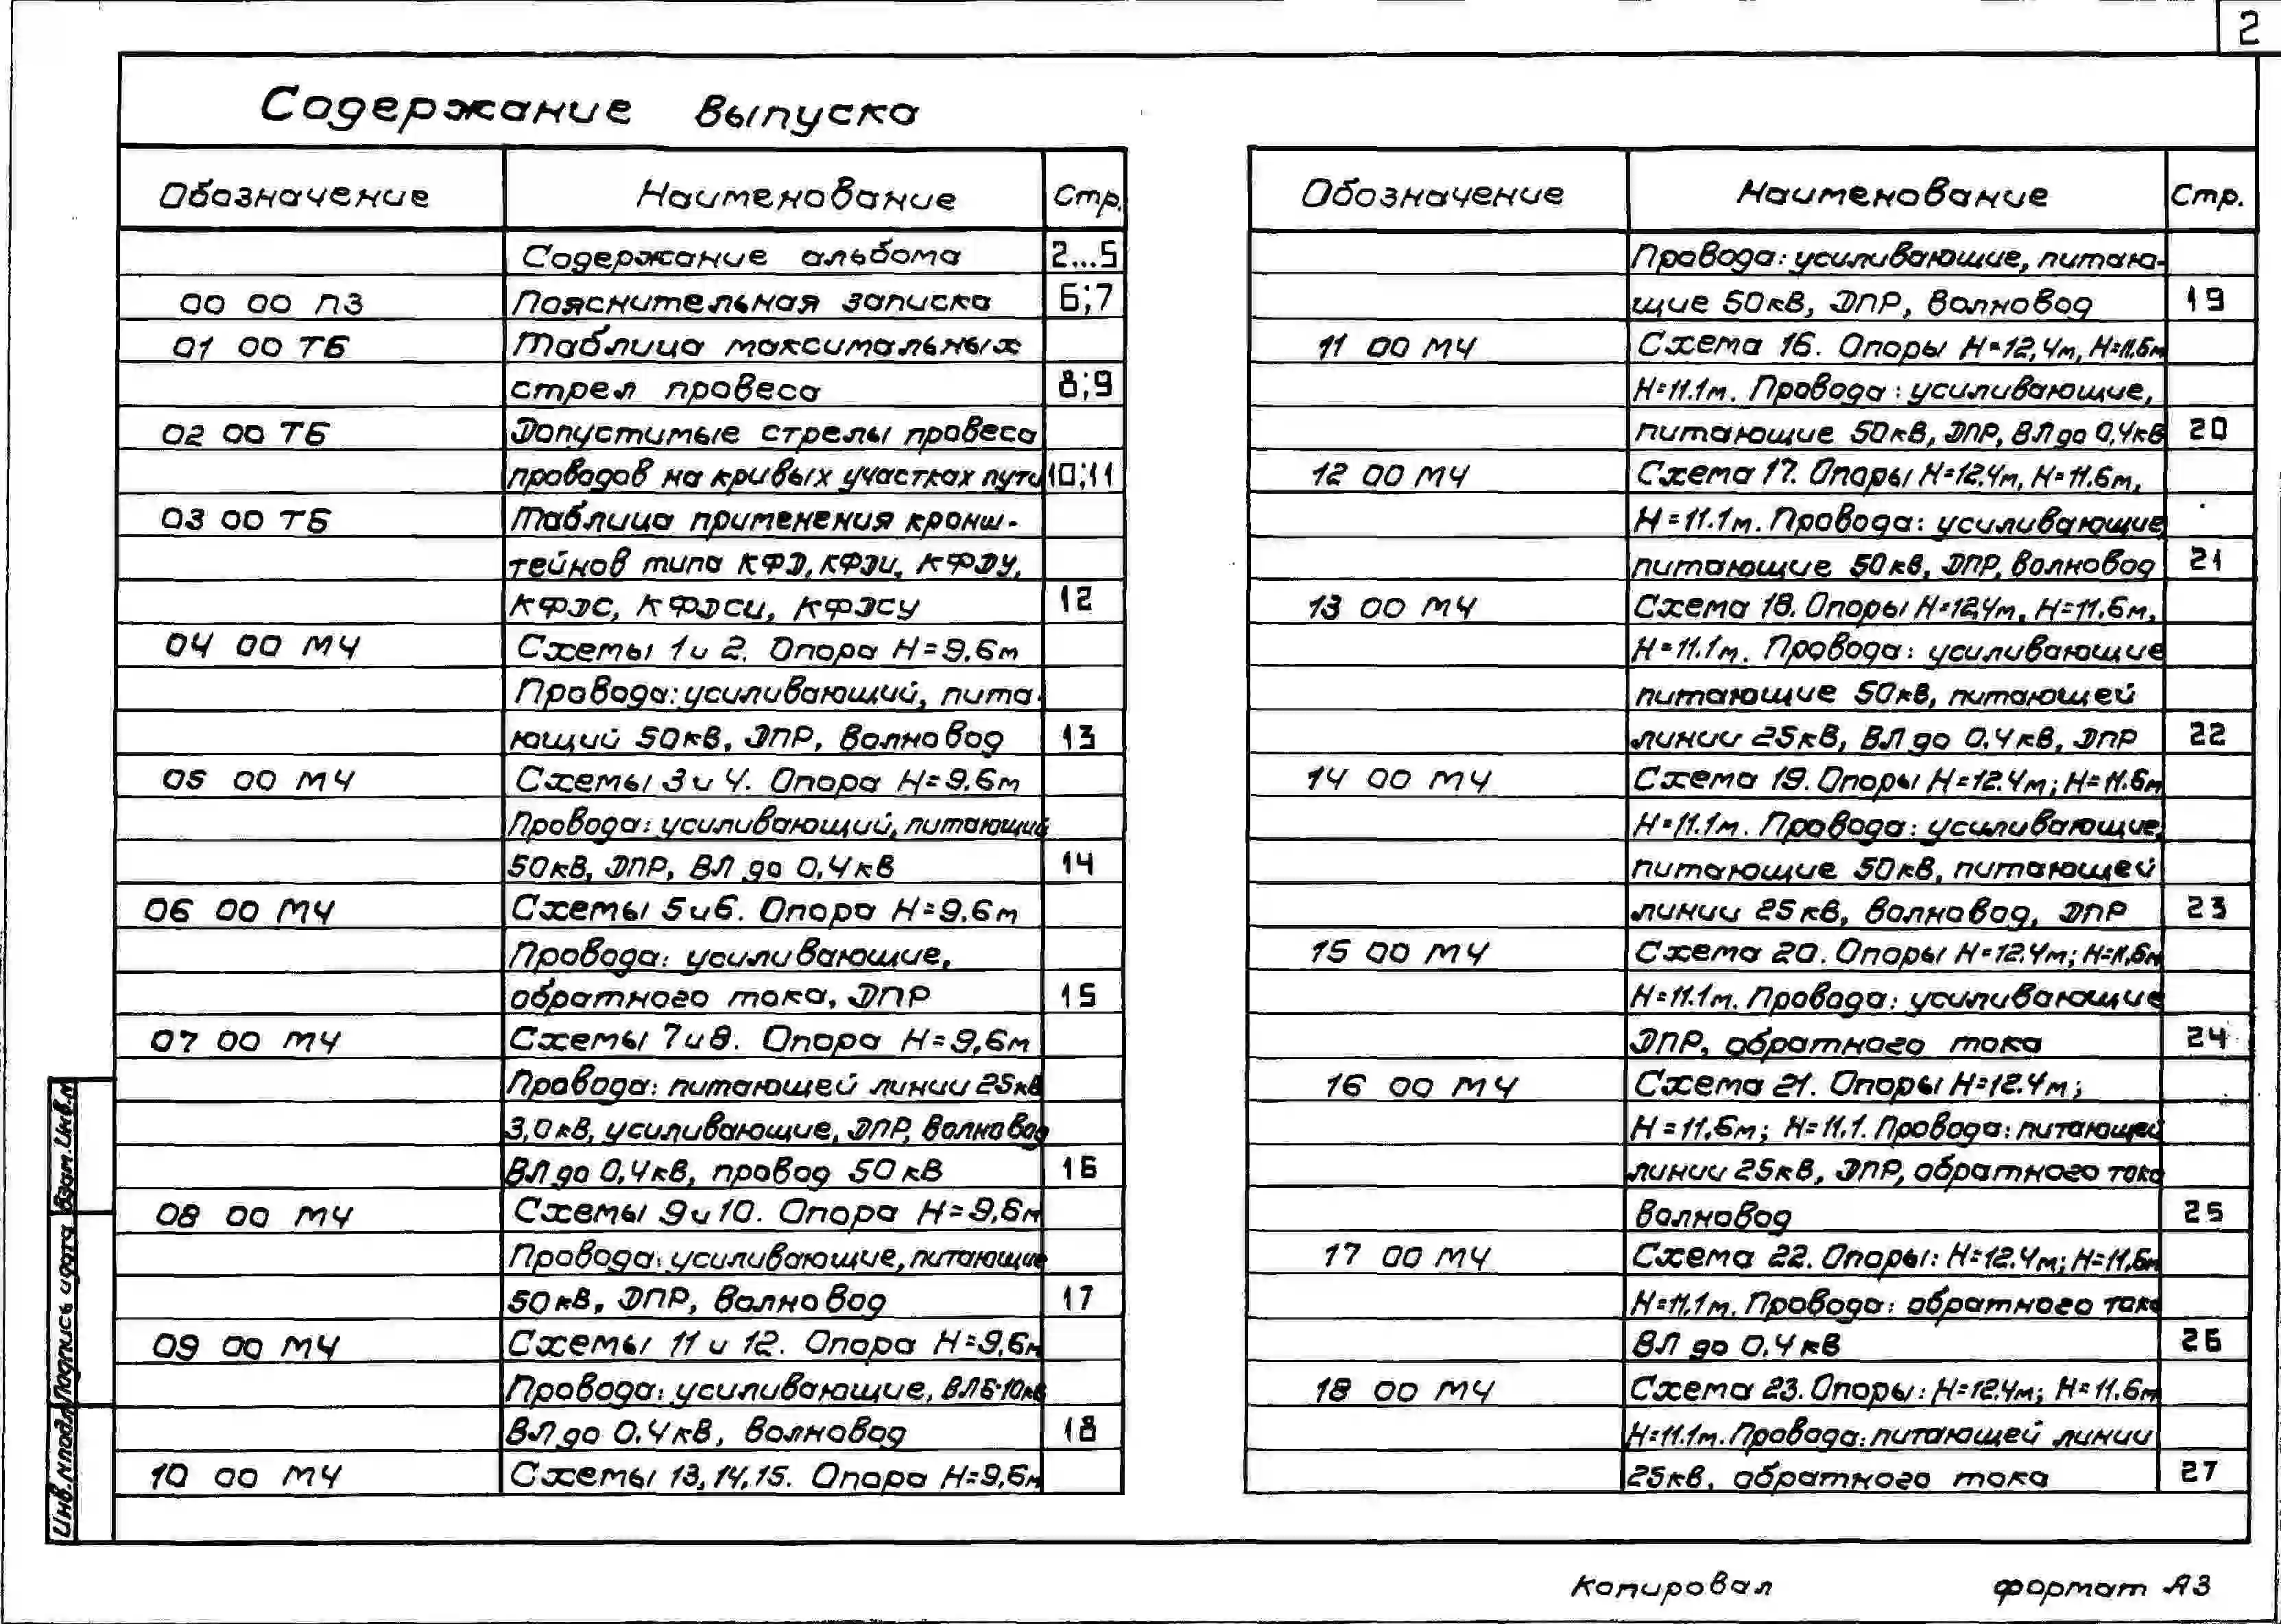 2
Содержание выпуска
Обозначение Наименование Стр.
Содержание альбома 2...5
00 00 ПЗ Пояснительная записка 6;7
01 00 ТБ Таблица максимальных
стрел провеса 8;9
02 00 ТБ Допустимые стрелы провеса
проводов на кривых участках пути 10;11
03 00 ТБ Таблица применения кронш-
тейнов типа КФД, КФДИ, КФДУ,
КФДС, КФДСИ, КФДСУ 12
04 00 МЧ Схемы 1 и 2. Опора Н=9.6м
Провода: усиливающий, пита-
ющий 50кВ, ДПР, волновод 13
05 00 МЧ Схемы 3 и 4. Опора Н=9.6м
Провода: усиливающий, питающий
50кВ, ДПР, ВЛ до 0,4кВ 14
06 00 МЧ Схемы 5 и 6. Опора Н=9.6м
Провода: усиливающие,
обратного тока, ДПР 15
07 00 МЧ Схемы 7 и 8. Опора Н=9,6м
Провода: питающей линии 25кВ
3,0кВ, усиливающие, ДПР, волновод
ВЛ до 0,4кВ, провод 50кВ 16
08 00 МЧ Схемы 9 и 10. Опора Н=9,6м
Провода: усиливающие, питающие
50кВ, ДПР, волновод 17
09 00 МЧ Схемы 11 и 12. Опора Н=9,6м
Провода: усиливающие, ВЛ6-10кВ
ВЛ до 0.4кВ, волновод 18
10 00 МЧ Схемы 13,14,15. Опора Н=9,6м
Обозначение Наименование Стр.
Провода: усиливающие, питаю-
щие 50кВ, ДПР, волновод 19
11 00 МЧ Схема 16. Опоры Н=12,4м, Н=11,6м
Н=11.1м. Провода: усиливающие,
питающие 50кВ, ДПР, ВЛ до 0,4кВ 20
12 00 МЧ Схема 17. Опоры Н=12.4м, Н=11.6м,
Н=11.1м. Провода: усиливающие
питающие 50кВ, ДПР, волновод 21
13 00 МЧ Схема 18. Опоры Н=12,4м, Н=11.6м,
Н=11.1м. Провода: усиливающие
питающие 50кВ, питающей
линии 25кВ, ВЛ до 0.4кВ, ДПР 22
14 00 МЧ Схема 19. Опоры Н=12.4м; Н=11.6м
Н=11.1м. Провода: усиливающие,
питающие 50кВ, питающей
линии 25кВ, волновод, ДПР 23
15 00 МЧ Схема 20. Опоры Н=12.4м; Н=11,6м
Н=11.1м. Провода: усиливающие
ДПР, обратного тока 24
16 00 МЧ Схема 21. Опоры Н=12.4м;
Н=11,6м; Н=11.1. Провода: питающей
линии 25кВ, ДПР, обратного тока
волновод 25
17 00 МЧ Схема 22. Опоры: Н=12.4м; Н=11,6м
Н=11,1м. Провода: обратного тока
ВЛ до 0.4кВ 26
18 00 МЧ Схема 23. Опоры: Н=12.4м; Н=11.6м
Н=11.1м. Провода: питающей линии
25кВ, обратного тока 27
Взам.Инв.№
Подпись и дата
Инв.№подл
Копировал формат А3